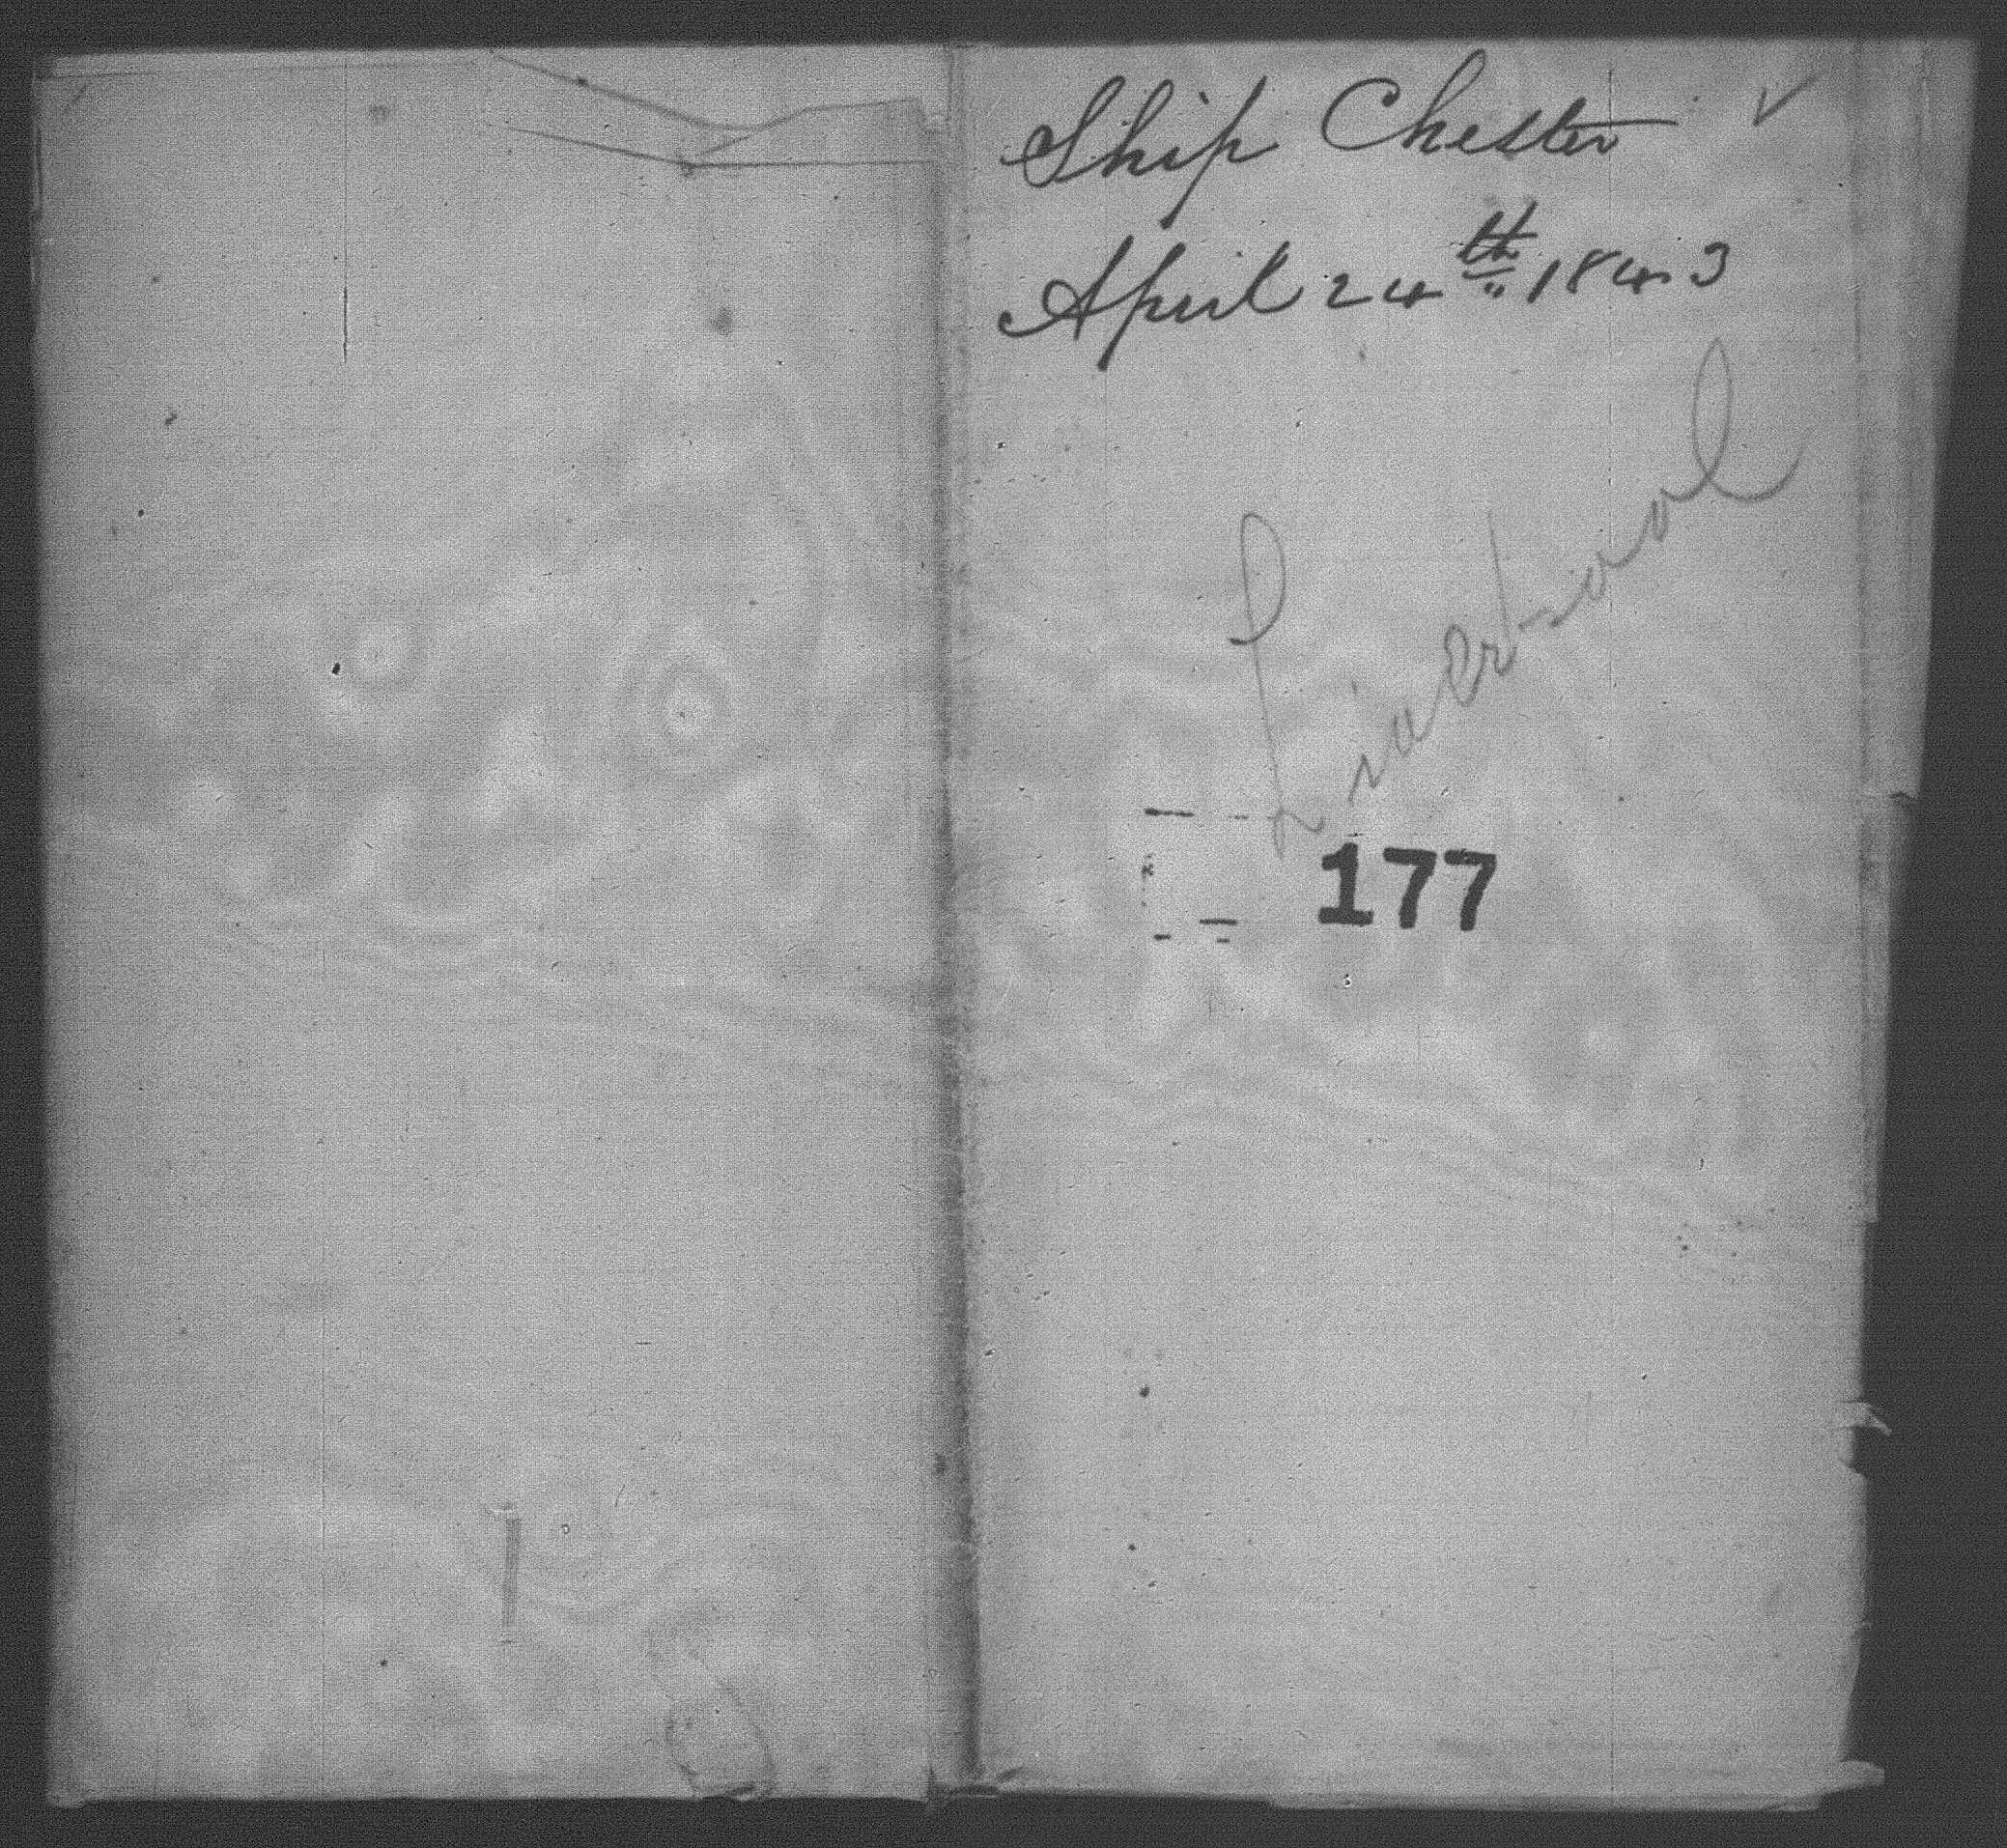 Ship Chester ✓
April 24th 1843
Liverpool
177